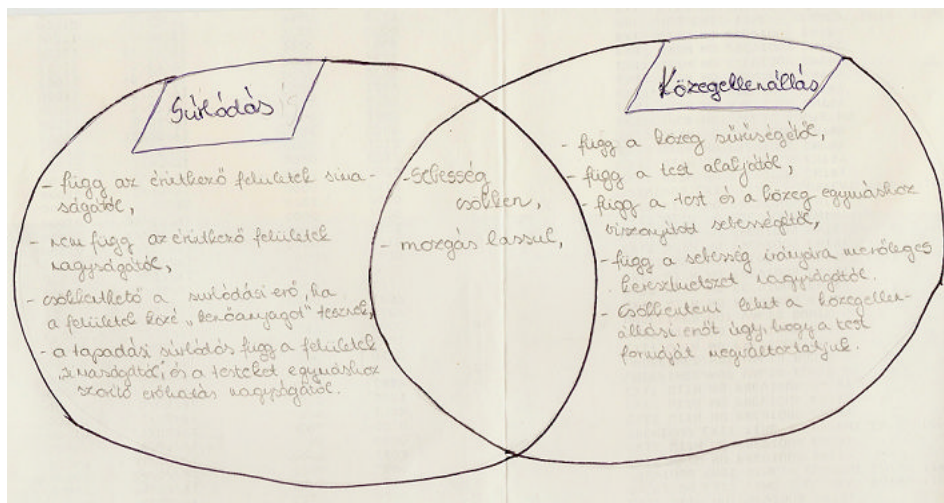 Súrlódás
- függ az érintkező felületek sima-
ságától,
- nem függ az érintkező felületek
nagyságától,
- csökkenthető a surlódási erő, ha
a felületek közé „kenőanyagot" teszünk,
- a tapadási súrlódás függ a felületek
„simaságától", és a testeket egymáshoz
szorító erőhatás nagyságától.
- sebesség
csökken,
- mozgás lassul,
Közegellenállás
- függ a közeg sűrűségétől,
- függ a test alakjától,
- függ a test és a közeg egymáshoz
viszonyított sebességétől,
- függ a sebesség irányára merőleges
keresztmetszet nagyságától.
- Csökkenteni lehet a közegellen-
állási erőt úgy, hogy a test
formáját megváltoztatjuk.